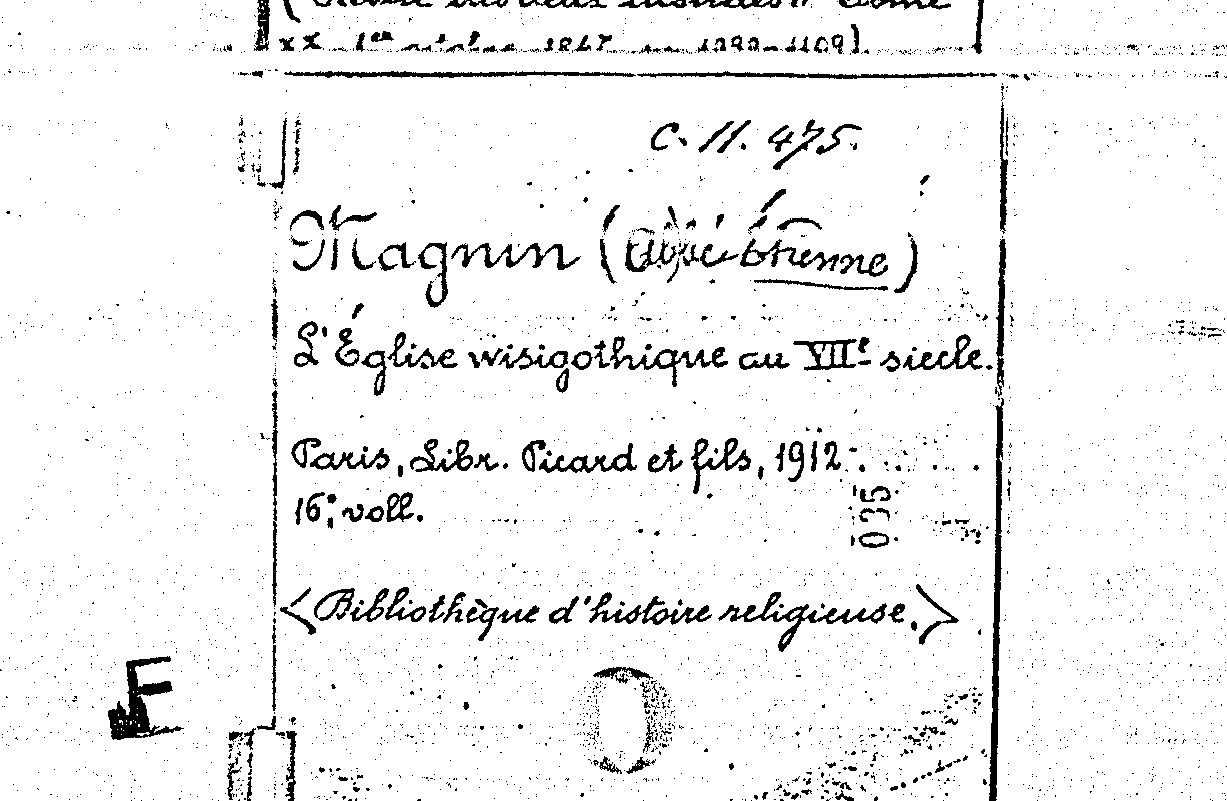 xx 1er octobre 1847 pp 1093-1109).
C. 11. 475.
Magnin (Abbé Étienne)
L'Église wisigothique au VIIe siecle.
Paris, Libr. Picard et fils, 1912.
16°; voll.
035
<Bibliothèque d'histoire religieuse.>
F